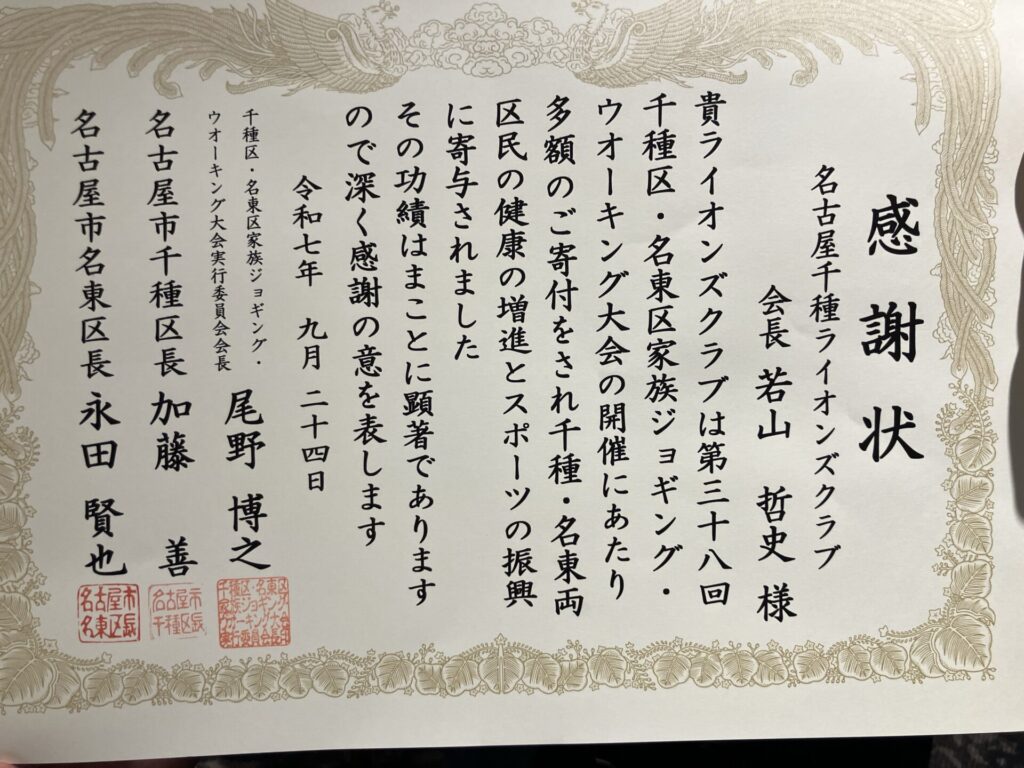 感謝状
名古屋千種ライオンズクラブ
会長 若山 哲史 様
貴ライオンズクラブは第三十八回
千種区・名東区家族ジョギング・
ウオーキング大会の開催にあたり
多額のご寄付をされ千種・名東両
区民の健康の増進とスポーツの振興
に寄与されました
その功績はまことに顕著であります
ので深く感謝の意を表します
令和七年 九月 二十四日
千種区・名東区家族ジョギング・
ウオーキング大会実行委員会会長 尾野 博之
名古屋市千種区長 加藤 善
名古屋市名東区長 永田 賢也
千種区・名東区
家族ジョギング
ウオーキング大会
実行委員会会長印
名古屋市
千種区長
名古屋市
名東区長